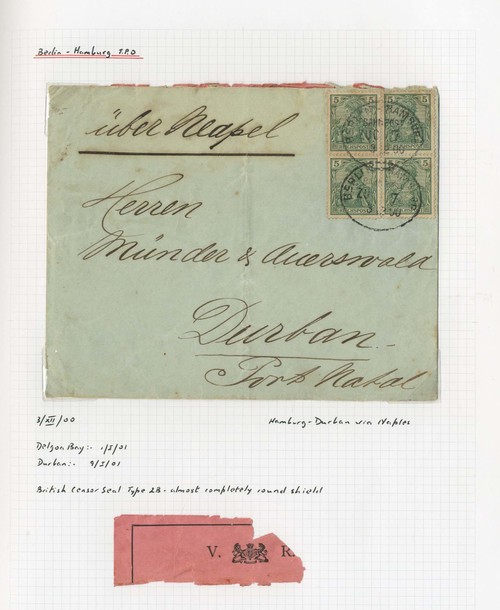 Berlin - Hamburg T.P.O
über Neapel
5 5
5 5
BERLIN HAMBURG
BAHNPOST
ZUG 7
Herren
Münder & Auerswald
Durban
Port Natal
3/XII/00
Hamburg - Durban via Naples
Delgoa Bay:- 1/I/01
Durban:- 9/I/01
British Censor Seal Type 2B - almost completely round shield
V. R.